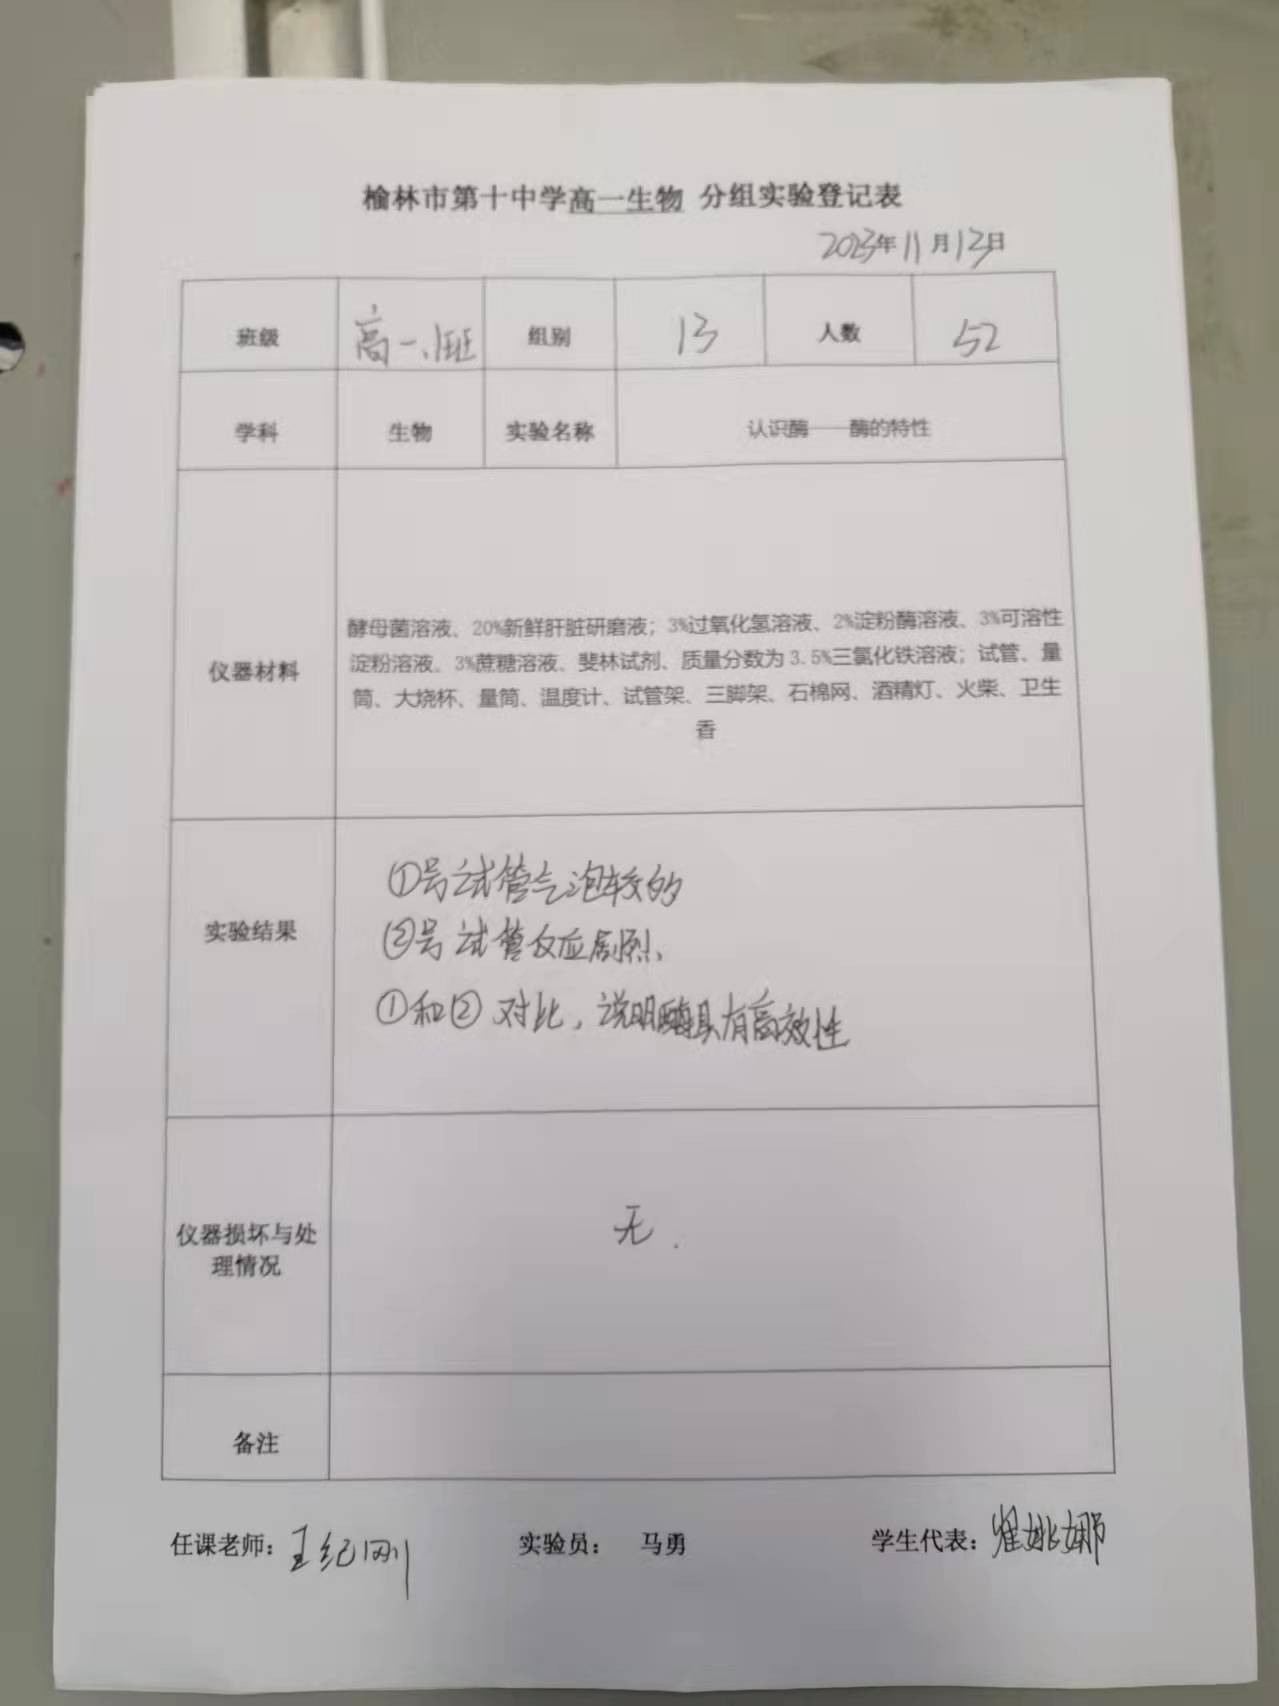 榆林市第十中学高一生物 分组实验登记表
2023年11月13日
班级 高一、1班 组别 13 人数 52
学科 生物 实验名称 认识酶——酶的特性
仪器材料
酵母菌溶液、20%新鲜肝脏研磨液；3%过氧化氢溶液、2%淀粉酶溶液、3%可溶性
淀粉溶液、3%蔗糖溶液、斐林试剂、质量分数为 3.5%三氯化铁溶液；试管、量
筒、大烧杯、量筒、温度计、试管架、三脚架、石棉网、酒精灯、火柴、卫生
香
实验结果
①号试管气泡较的
②号试管反应剧烈、
①和②对比，说明酶具有高效性
仪器损坏与处
理情况
无.
备注
任课老师：王纪刚 实验员： 马勇 学生代表：崔姚娜